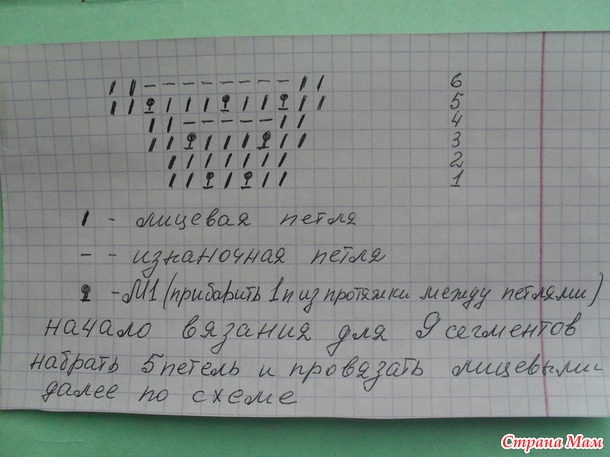 I I - - - - - - - - I I 6
I I ⚲ I I I ⚲ I I ⚲ I I 5
I I - - - - - I I 4
I I ⚲ I I I ⚲ I I 3
I I I I I I I 2
I I ⚲ I ⚲ I I 1
I - лицевая петля
- - изнаночная петля
⚲ - М1 (прибавить 1п из протяжки между петлями)
начало вязания для 9 сегментов
набрать 5 петель и провязать лицевыми
далее по схеме
Страна Мам